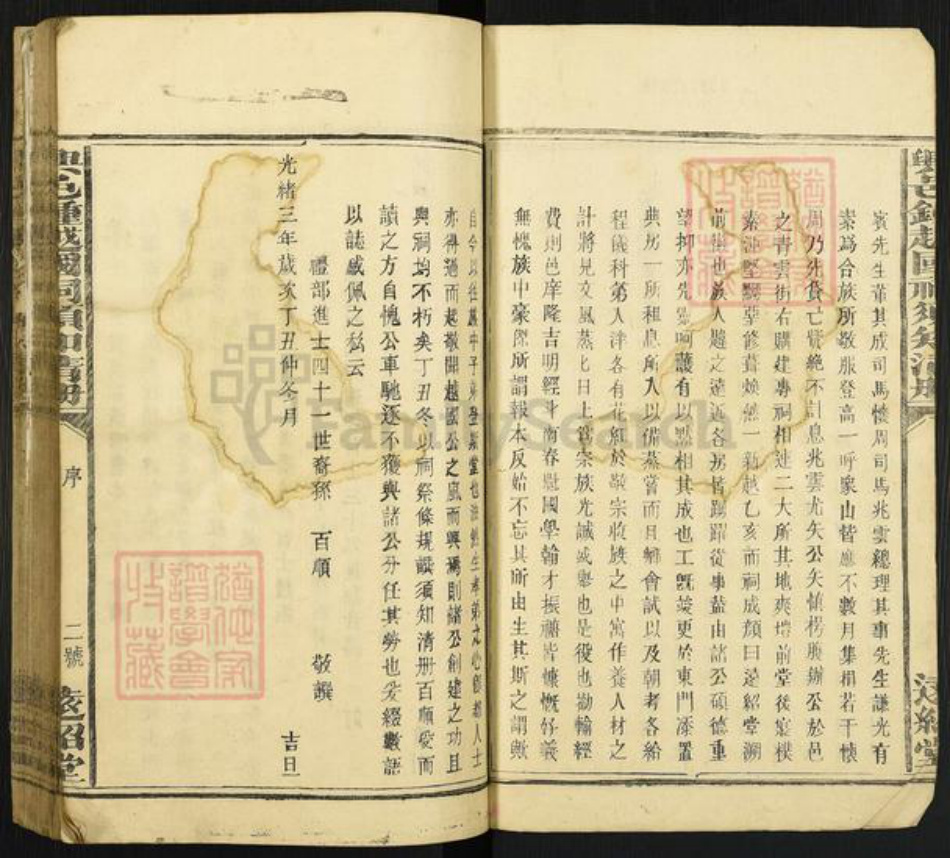 賓先生董其成司馬懷周司馬兆雲總理其事先生謙光有
素為合族所敬服登高一呼衆山皆應不數月集捐若干懷
周乃先貲亡貲絶不計息兆雲尤矢公矢慎楞賡辦公於邑
之青雲街右購建專祠相連二大所其地爽塏前堂後寢樸
素渾堅 修葺煥然一新越乙亥而祠成顏曰遠紹堂溯
前徽也族人趨之遠近各房皆踴躍從事蓋由諸公碩德重
望抑亦先靈呵護有以默相其成也工既竣更於東門添置
典房一所租息所入以備蒸嘗而且鄉會試以及朝考各給
程儀科第入泮各有花紅於敬宗收族之中寓作養人材之
計將見文風蒸蒸日上為宗族光誠盛舉也是役也勸輸經
費則邑庠隆吉明經斗南春融國學翰才振禰皆慷慨好義
無愧族中豪傑所謂報本反始不忘其所由生其斯之謂歟
自今以往族中子弟登斯堂也油然生孝弟之心即都人士
亦得過而起敬聞越國公之風而興焉則諸公創建之功且
與祠均不朽矣丁丑冬以祠祭條規譔須知清册百順愛而
讀之方自愧公車馳逐不獲與諸公分任其勞也爰綴數語
以誌感佩之私云
禮部進士四十一世裔孫 百順 敬譔
光緒三年歲次丁丑仲冬月 吉日
興邑鍾越國祠須知清册
序
二號
遠紹堂
興邑鍾越國祠須知清册
遠紹堂
FamilySearch